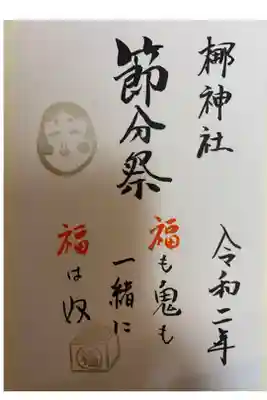 梛神社
令和二年
節分祭
福も鬼も
一緒に
福は